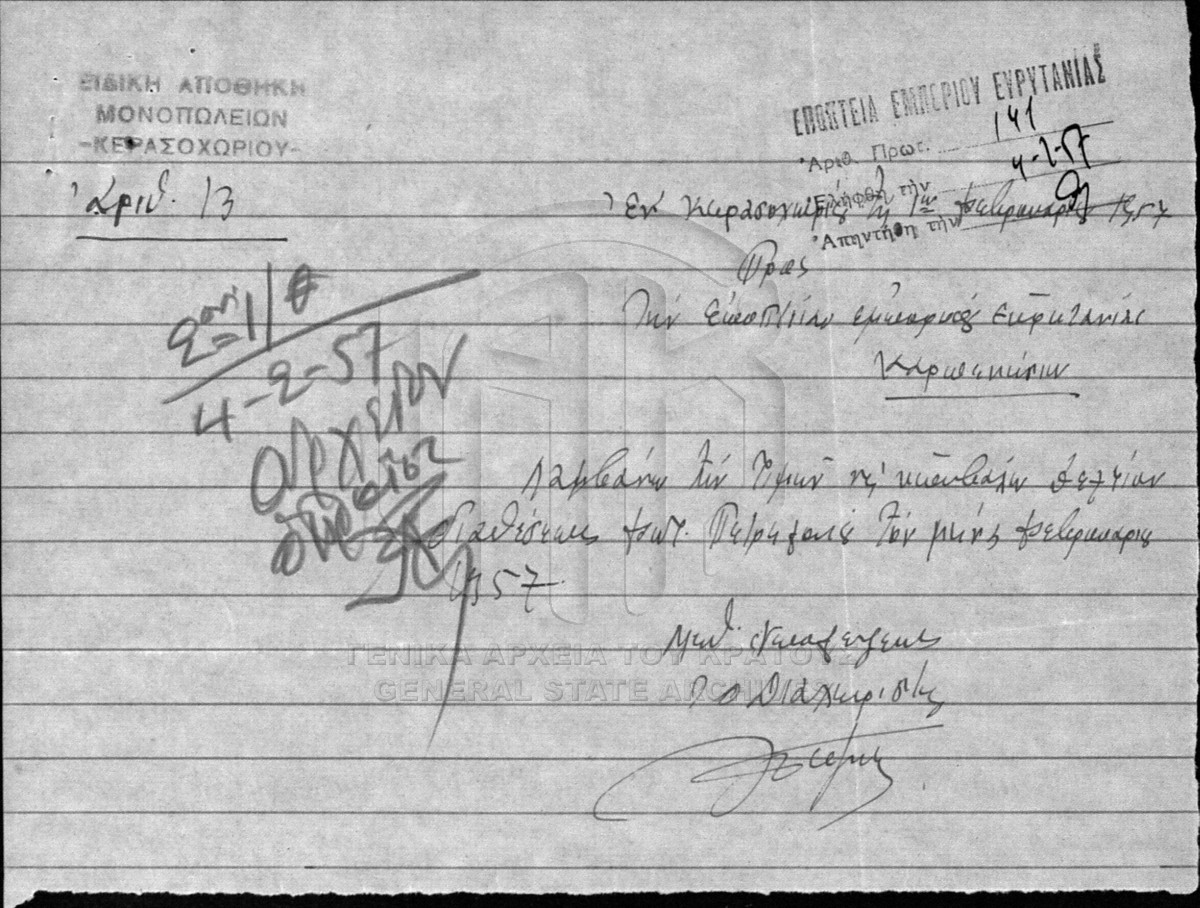 ΕΙΔΙΚΗ ΑΠΟΘΗΚΗ
ΜΟΝΟΠΩΛΕΙΩΝ
-ΚΕΡΑΣΟΧΩΡΙΟΥ-
Ἀριθ. 13
ΕΠΟΠΤΕΙΑ ΕΜΠΟΡΙΟΥ ΕΥΡΥΤΑΝΙΑΣ
Ἀριθ. Πρωτ. 141
Ἐλήφθη τὴν 4-2-57
Ἀπηντήθη τὴν
Ἐν Κερασοχωρίῳ τῇ 1ῃ Φεβρουαρίου 1957
Πρὸς
Τὴν Ἐποπτείαν Ἐμπορίου Εὐρυτανίας
Καρπενήσιον
4-2-57
ἀρχεῖον
Λαμβάνω τὴν τιμὴν νὰ ὑποβάλω δελτίον
διαθέσεως φωτ. Πετρελαίου τοῦ μηνὸς Φεβρουαρίου
1957
Μεθ'
Ὁ Διαχειριστὴς
ΓΕΝΙΚΑ ΑΡΧΕΙΑ ΤΟΥ ΚΡΑΤΟΥΣ
GENERAL STATE ARCHIVES